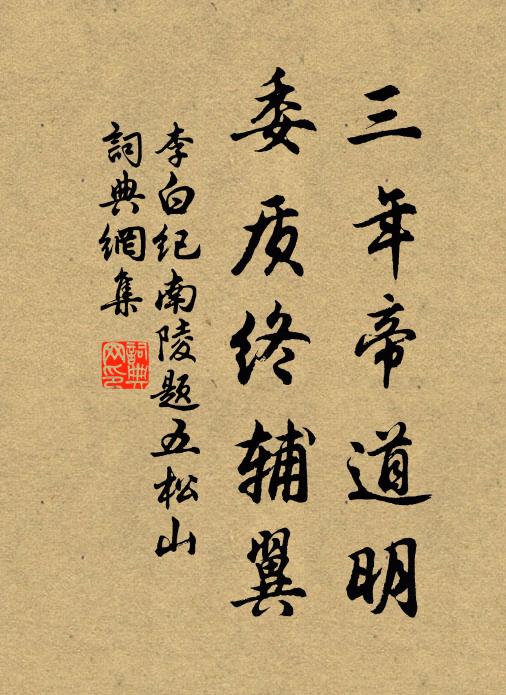 三年帝道明
委质终辅翼
李白纪南陵题五松山
詞典網集
詞典網印